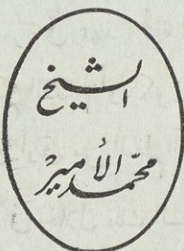 الشيخ
محمد الأمير